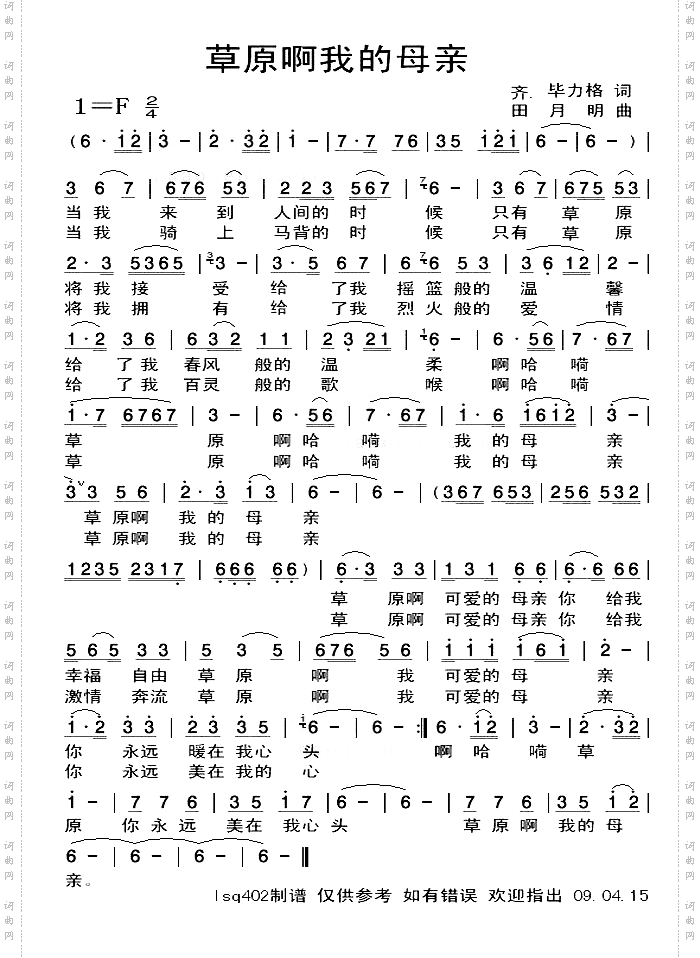 草原啊我的母亲
齐.毕力格 词
1=F 2/4
田 月 明 曲
(6· i2|3-|2·32|i-|7·7 76|35 i2i|6-|6-)|
3 6 7|676 53|2 23 567|6-|3 6 7|675 53|
当我 来 到 人间的 时 候 只有 草 原
当我 骑 上 马背的 时 候 只有 草 原
2·3 5365|3-|3·5 67|6 6 53|3 6 12|2-|
将我 接 受 给 了我 摇 篮 般的 温 馨
将我 拥 有 给 了我 烈 火 般的 爱 情
1·2 36|632 11|2 3 21|6-|6·56|7·67|
给 了我 春风 般的 温 柔 啊 哈 嗬
给 了我 百灵 般的 歌 喉 啊 哈 嗬
i·7 6767|3-|6·56|7·67|i·6 i6i2|3-|
草 原 啊 哈 嗬 我 的 母 亲
草 原 啊 哈 嗬 我 的 母 亲
3 3 56|2·3 i3|6-|6-|(367 653|256 532|
草 原啊 我 的 母 亲
草 原啊 我 的 母 亲
1235 2317|666 66)|6·3 33|131 66|6·6 66|
草 原啊 可爱的 母亲 你 给我
草 原啊 可爱的 母亲 你 给我
565 33|5 35|676 56|i i i|i6i|2-|
幸福 自由 草 原 啊 我 可爱的 母 亲
激情 奔流 草 原 啊 我 可爱的 母 亲
i·2 33|23 35|6-|6-:‖6·i2|3-|2·32|
你 永远 暖在 我心 头 啊 哈 嗬 草
你 永远 美在 我的 心
i-|7 7 6|35 i7|6-|6-|7 7 6|35 i2|
原 你 永 远 美在 我心 头 草 原 啊 我的 母
6-|6-|6-|6-‖
亲。
lsq402制谱 仅供参考 如有错误 欢迎指出 09.04.15
词曲网